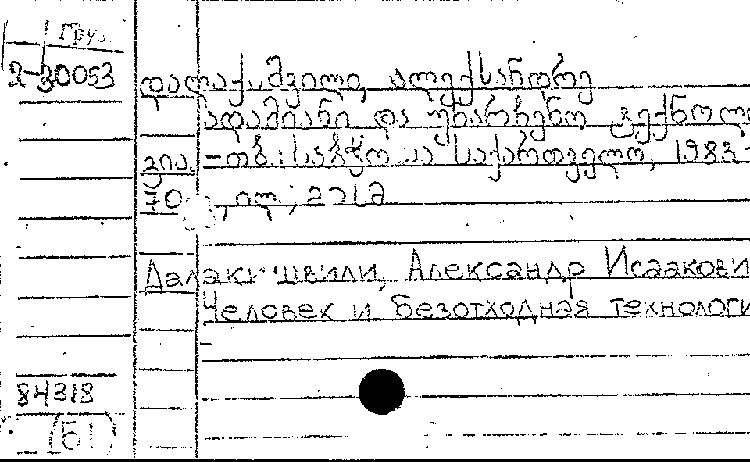 Груз.
2-30053
დალაქიშვილი, ალექსანდრე
ადამიანი და უნარჩენო ტექნოლო
გია. -თბ.: საბჭოთა საქართველო, 1983-
70 , ილ ; 20
Далакишвили, Александр Исаакови
Человек и безотходная технологи
84318
(61)